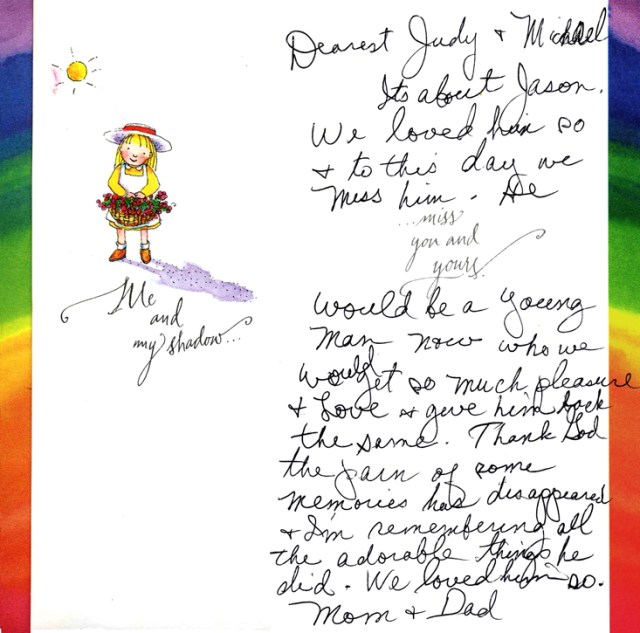 Me
and
my shadow...
Dearest Judy + Michael
Its about Jason.
We loved him so
+ to this day we
miss him. He
...miss
you and
yours.
would be a young
man now who we
would get so much pleasure
+ Love + give him back
the same. Thank God
the pain of some
memories has disappeared
+ I'm remembering all
the adorable things he
did. We loved him so.
Mom + Dad